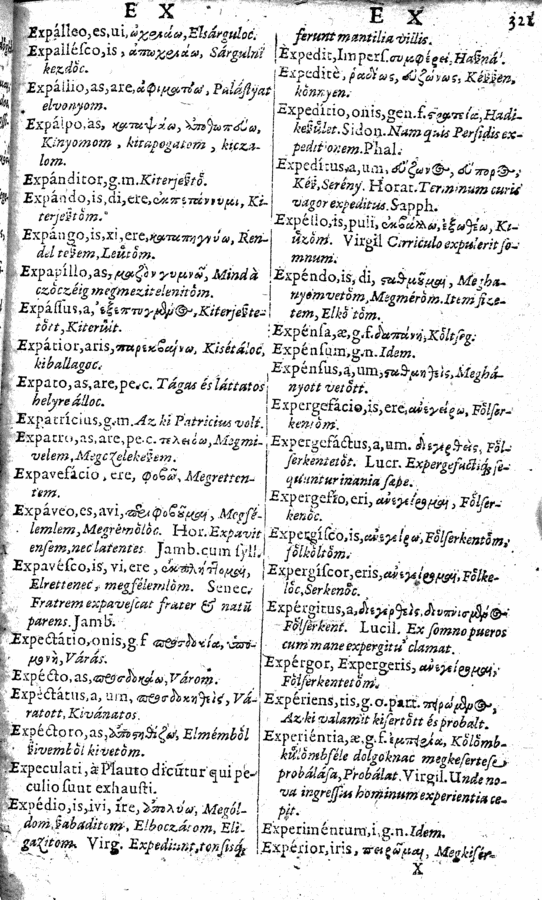 E X
Expálleo,es,ui, ὠχράω, Elsárguloc.
Expalléſco,is, ἀπωχράω, Sárgulni
kezdòc.
Expállio,as,are, Paláſtyat
elvonyom.
Expálpo,as, καταψάω,
Kinyomom, kitapogatom, kicza-
lom.
Expánditor,g.m. Kiterjeſtö.
Expándo,is,di,ere, ἐκπετάννυμι, Ki-
terjeſtöm.
Expángo,is,xi,ere, καταπηγνύω, Ren-
del teſem, Leütöm.
Expapíllo,as, μαζὸν γυμνῶ, Mind à
czöczéig megmezitelenitöm.
Expáſſus,a, Kiterjeſte-
tött, Kiterült.
Expátior,aris, παρεκβαίνω, Kisétáloc,
kiballagoc.
Expato,as,are,pe.c. Tágas és láttatos
helyre álloc.
Expatrícius,g.m. Az ki Patricius volt.
Expatro,as,are,pe.c. τελειόω, Megmi-
velem, Megczelekeſem.
Expavefácio, ere, φοβῶ, Megretten-
tem.
Expáveo,es,avi, Megfé-
lemlem, Megrémölöc. Hor. Expavit
enſem,nec latentes Jamb.cum ſyll.
Expavéſco,is, vi, ere,
Elrettenec, megfélemlöm. Senec.
Fratrem expaveſcat frater & natū
parens. Jamb.
Expectátio,onis,g.f προσδοκία,
Várás.
Expécto,as, προσδοκάω, Várom.
Expéctátus,a, um, προσδοκηθεὶς, Vá-
ratott, Kivánatos.
Expéctoro,as, Elmémböl
ſivemböl kivetöm.
Expeculati, à Plauto dicūtur qui pe-
culio ſunt exhauſti.
Expédio,is,ivi, íte, ἀπολύω, Megól-
dom, ſabaditom, Elboczátom, Eli-
gazitom. Virg. Expediunt,tonſisq́;
E X 321
ferunt mantilia villis.
Expedit, Imperſ. συμφέρει, Haſnál.
Expedítè, ῥαδίως, εὐζώνως, Késſen,
könnyen.
Expedítio,onis,gen.f. στρατεία, Hadi-
keſület. Sidon. Nam quis Perſidis ex-
peditionem. Phal.
Expedítus,a,um,
Kéſ, Serény. Horat. Terminum curis
vagor expeditus. Sapph.
Expéllo,is,puli, ἐκβάλλω, ἐξωθέω, Ki-
üzöm. Virgil Curriculo expulerit ſo-
mnum.
Expéndo,is,di, σταθμῶμαι, Megha-
nyomvetöm, Megméröm. Item fize-
tem, Elkö töm.
Expénſa,æ,g.f. δαπάνη, Költſeg.
Expénſum,g.n. Idem.
Expénſus,a,um, σταθμηθεὶς, Meghá-
nyott vetött.
Expergefácio,is,ere, ἀνεγείρω, Fölſer-
kentöm.
Expergefáctus,a,um. διεγερθεὶς, Föl-
ſerkentetöt. Lucr. Expergefactiq́; ſe-
quuntur inania ſæpe.
Expergefio,eri, ἀνεγείρομαι, Fölſer-
kenöc.
Expergíſco,is, ἀνεγείρω, Fölſerkentöm,
fölköltöm.
Expergíſcor,eris, ἀνεγείρομαι, Fölke-
löc, Serkenöc.
Expérgitus,a, διεγερθεὶς,
Fölſerkent. Lucil. Ex ſomno pueros
cum mane expergitu' clamat.
Expérgor, Expergeris, ἀνεγείρομαι,
Fölſerkentetöm.
Expériens,tis,g.o.part.
Az ki valamit kiſertött és probalt.
Experiéntia,æ,g.f. ἐμπειρία, Kölömb-
külömbſéle dolgoknac megkeſertese
probálása, Probálat. Virgil. Unde no-
va ingreſſus hominum experientia ce-
pit.
Experiméntum,i,g.n. Idem.
Expérior,iris, πειρῶμαι, Megkiſér-
X